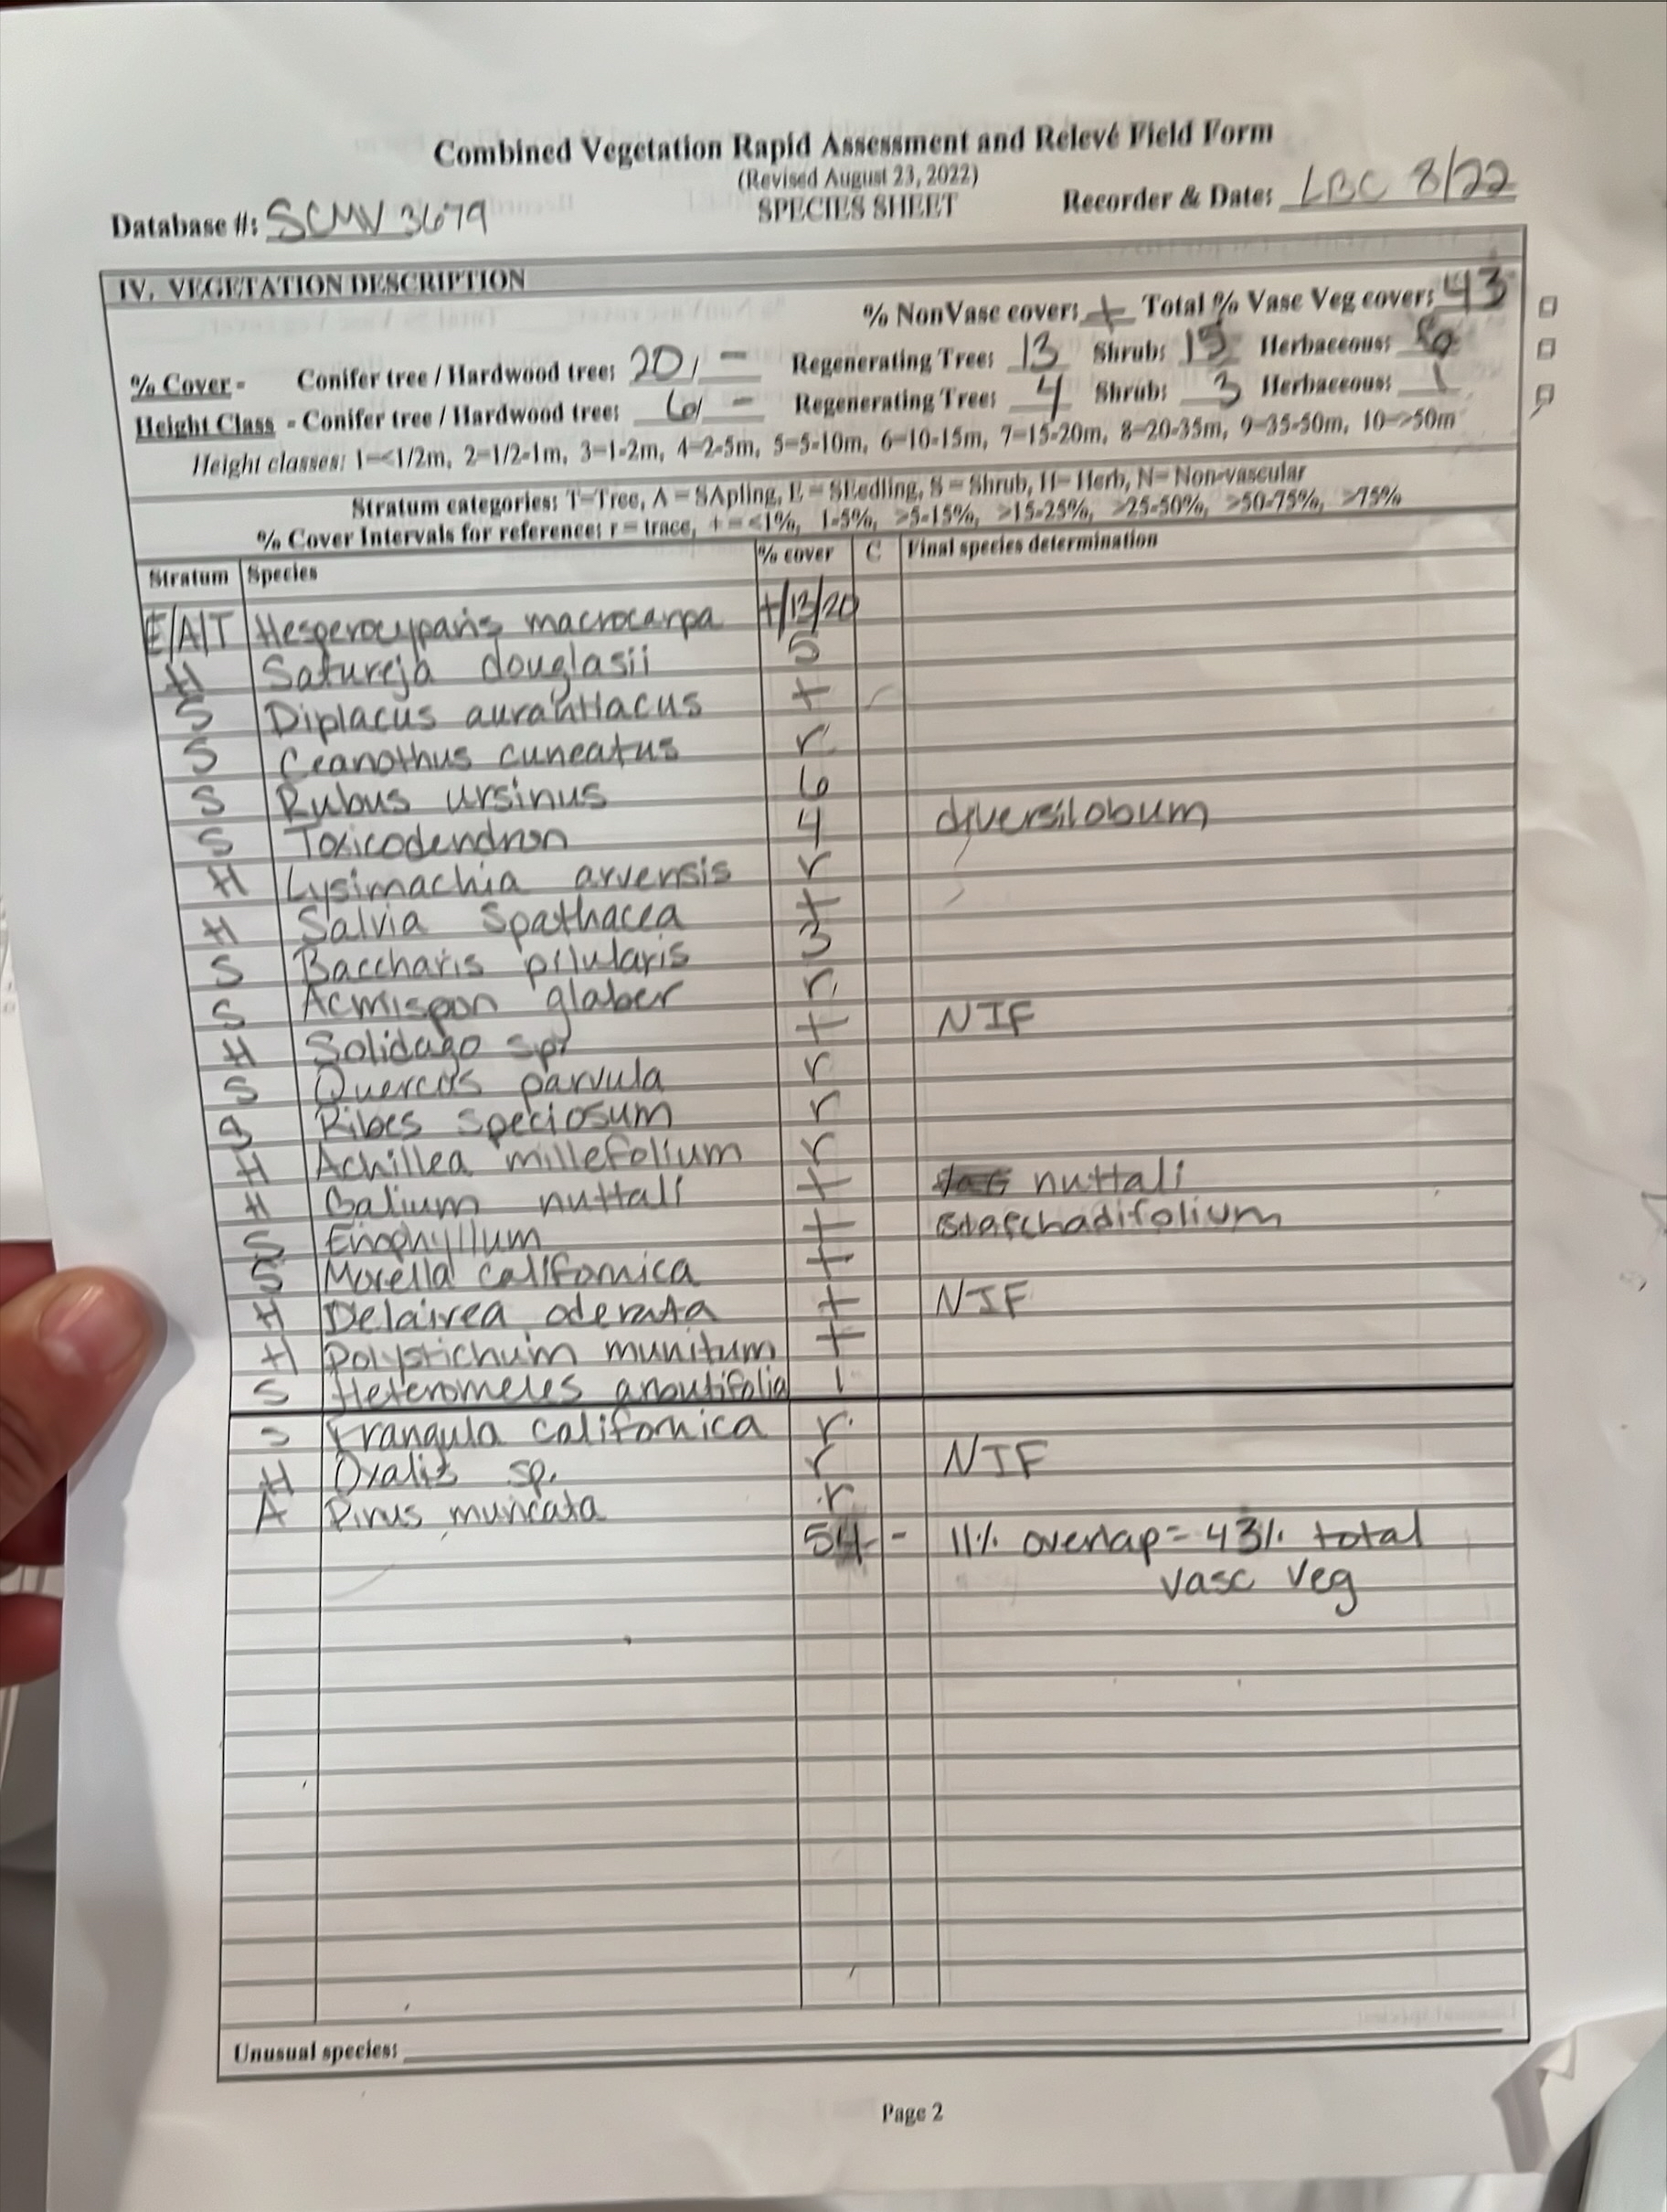 Combined Vegetation Rapid Assessment and Relevé Field Form
(Revised August 23, 2022)
Database #: SCMV 3679 SPECIES SHEET Recorder & Date: LBC 8/22
IV. VEGETATION DESCRIPTION
% NonVasc cover: + Total % Vasc Veg cover: 43
% Cover - Conifer tree / Hardwood tree: 20 / - Regenerating Tree: 13 Shrub: 15 Herbaceous:
Height Class - Conifer tree / Hardwood tree: 6 / - Regenerating Tree: 4 Shrub: 3 Herbaceous: 1
Height classes: 1=<1/2m, 2=1/2-1m, 3=1-2m, 4=2-5m, 5=5-10m, 6=10-15m, 7=15-20m, 8=20-35m, 9=35-50m, 10=>50m
Stratum categories: T=Tree, A = SApling, E = SEedling, S = Shrub, H= Herb, N= Non-vascular
% Cover Intervals for reference: r = trace, + = <1%, 1-5%, >5-15%, >15-25%, >25-50%, >50-75%, >75%
Stratum Species % cover C Final species determination
E/A/T Hesperocyparis macrocarpa +/13/20
H Satureja douglasii 5
S Diplacus aurantiacus +
S Ceanothus cuneatus r
S Rubus ursinus 6
S Toxicodendron 4 diversilobum
H Lysimachia arvensis r
H Salvia spathacea +
S Baccharis pilularis 3
S Acmispon glaber r
H Solidago sp. + NIF
S Quercus parvula r
S Ribes speciosum r
H Achillea millefolium r
H Galium nuttali + nuttali
S Eriophyllum + staechadifolium
S Morella californica +
H Delairea oderata + NIF
H Polystichum munitum +
S Heteromeles aroutifolia 1
S Frangula californica r
H Oxalis sp. r NIF
A Pinus muricata r
54 - 11% overlap = 43% total
vasc veg
Unusual species:
Page 2